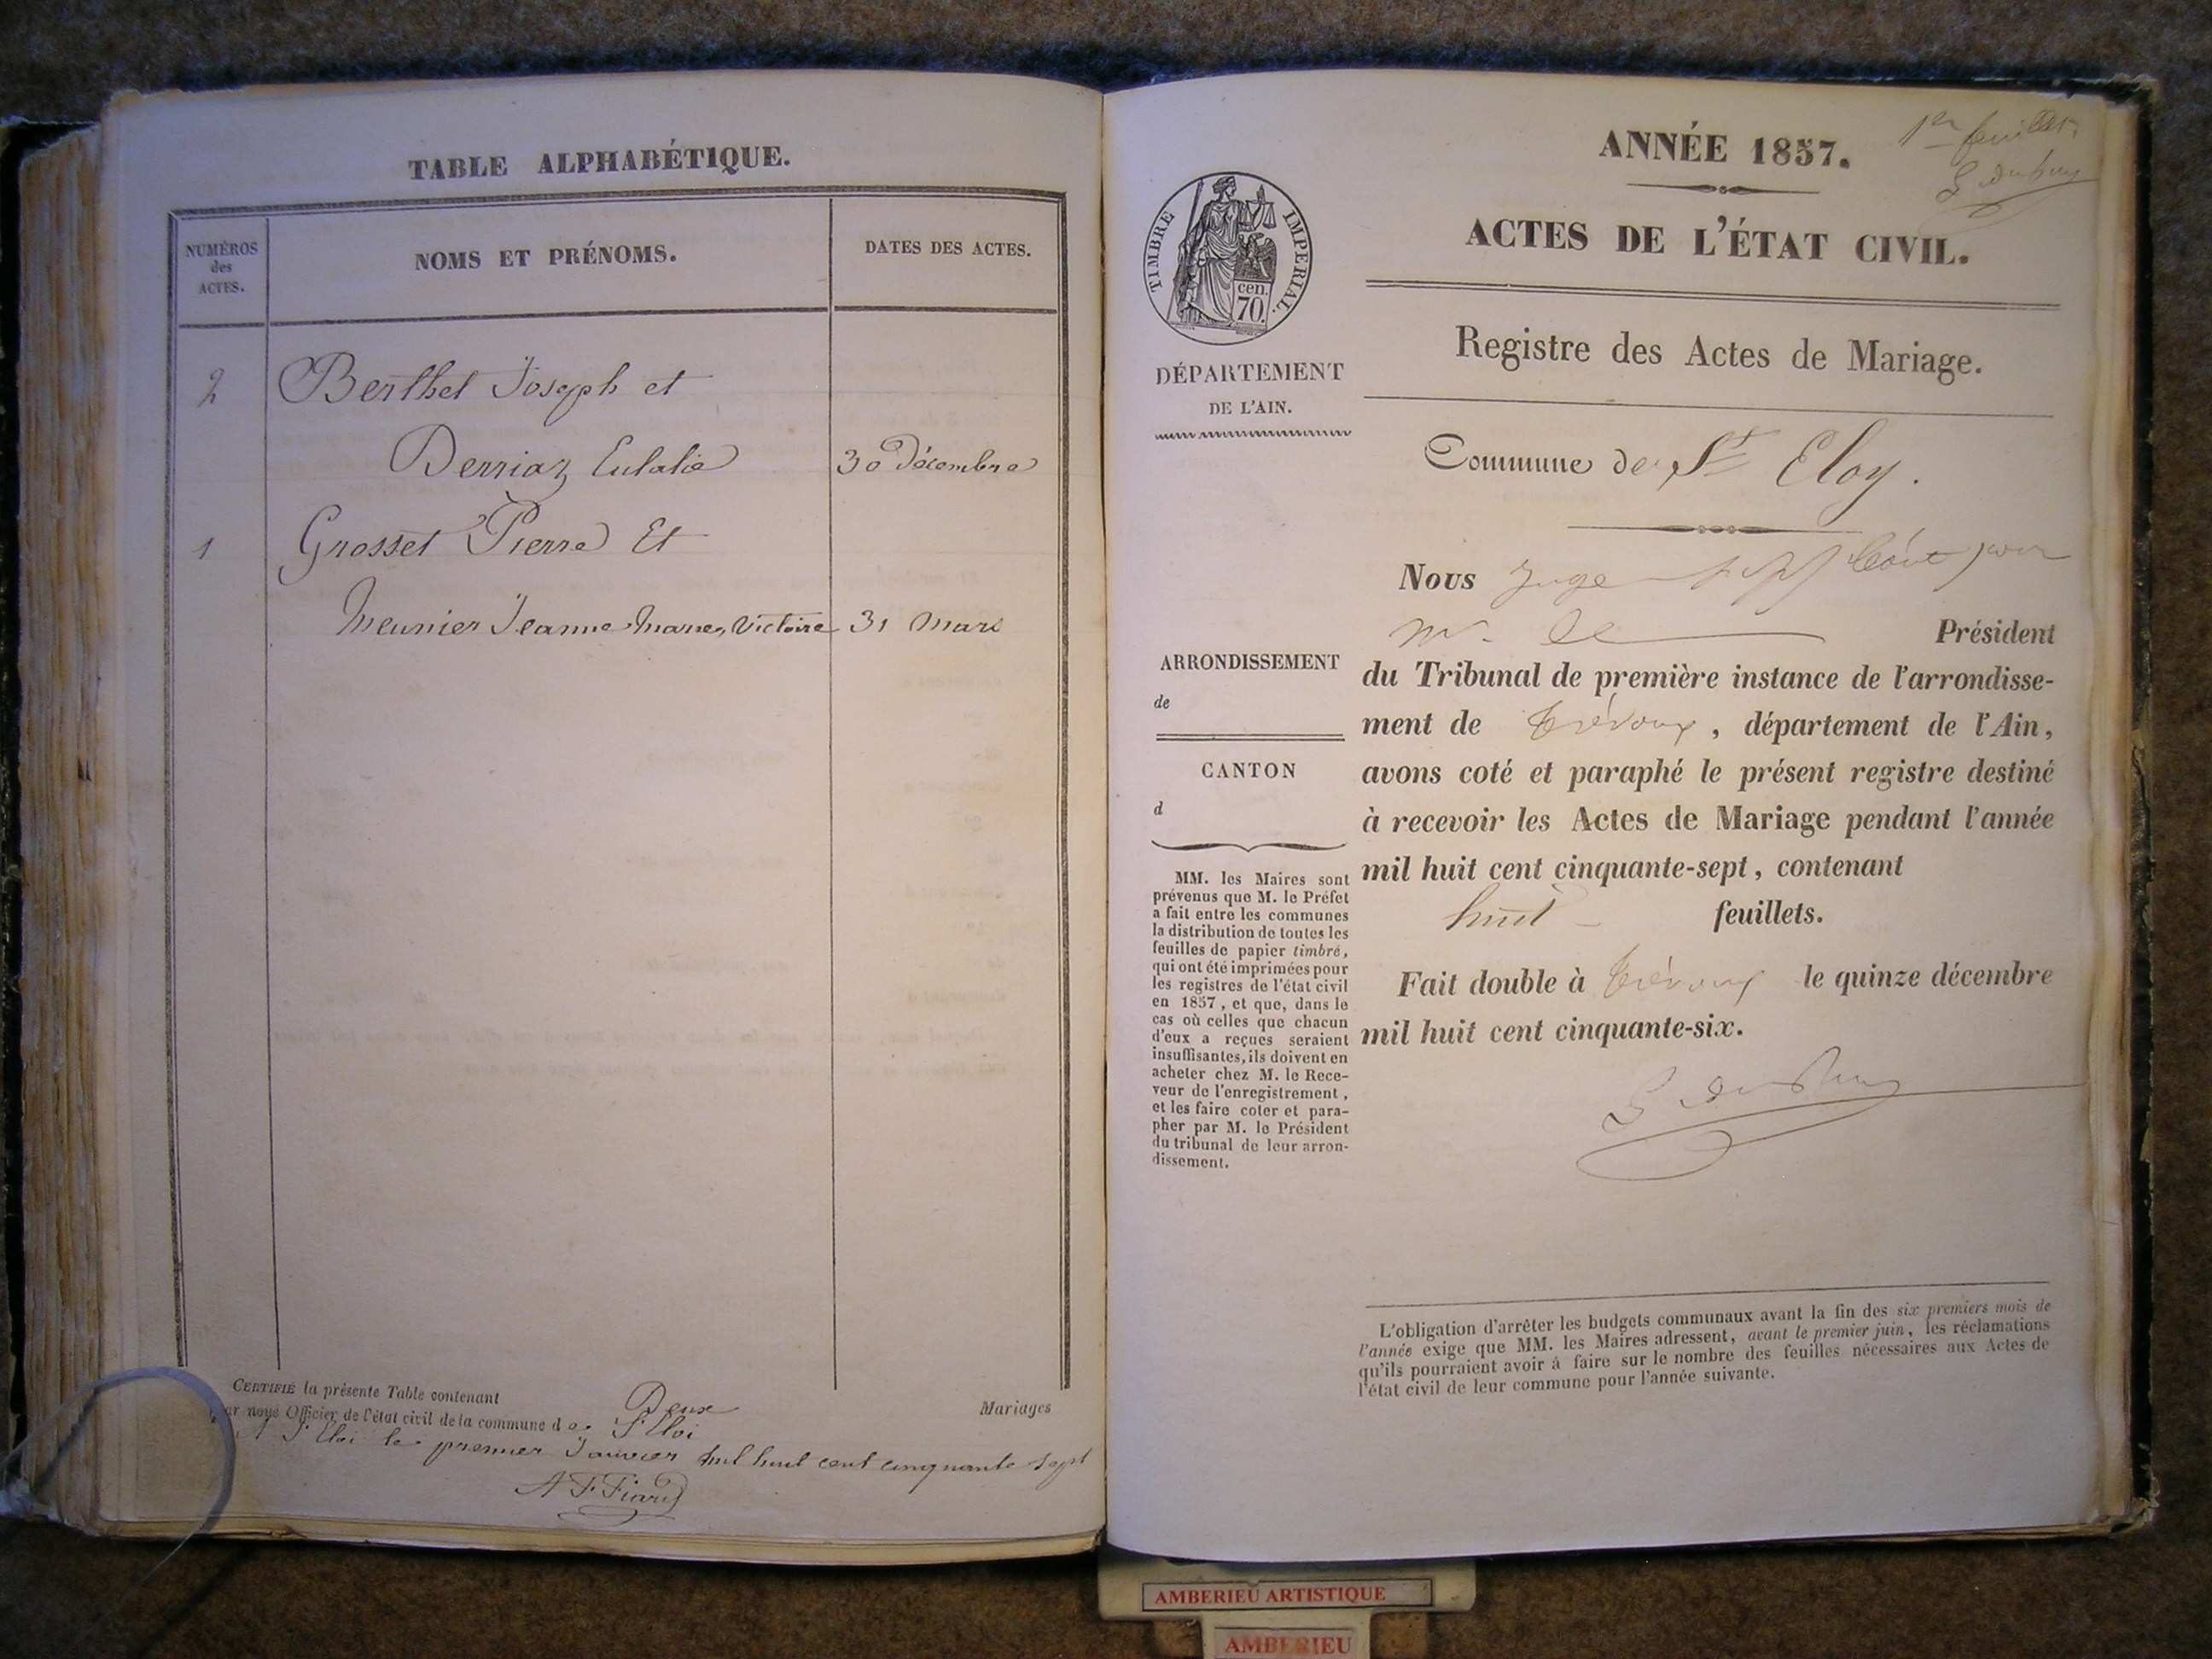 TABLE ALPHABÉTIQUE.
NUMÉROS des ACTES.
NOMS ET PRÉNOMS.
DATES DES ACTES.
2 Berthet Joseph et
Derriaz Eulalie 30 Décembre
1 Grosset Pierre Et
Meunier Jeanne Marie, Victoire 31 Mars
CERTIFIÉ la présente Table contenant Deux Mariages
par nous Officier de l'état civil de la commune de St Eloi
A St Eloi le premier Janvier mil huit cent cinquante sept
1er feuillet
ANNÉE 1857.
ACTES DE L'ÉTAT CIVIL.
TIMBRE IMPERIAL.
cen.
70.
DÉPARTEMENT
DE L'AIN.
Registre des Actes de Mariage.
Commune de St Eloy.
ARRONDISSEMENT
de
CANTON
d
MM. les Maires sont
prévenus que M. le Préfet
a fait entre les communes
la distribution de toutes les
feuilles de papier timbré,
qui ont été imprimées pour
les registres de l'état civil
en 1857, et que, dans le
cas où celles que chacun
d'eux a reçues seraient
insuffisantes, ils doivent en
acheter chez M. le Rece-
veur de l'enregistrement,
et les faire coter et para-
pher par M. le Président
du tribunal de leur arron-
dissement.
Nous Juge suppléant pour
Mr. le Président
du Tribunal de première instance de l'arrondisse-
ment de Trévoux, département de l'Ain,
avons coté et paraphé le présent registre destiné
à recevoir les Actes de Mariage pendant l'année
mil huit cent cinquante-sept, contenant
huit feuillets.
Fait double à Trévoux le quinze décembre
mil huit cent cinquante-six.
L'obligation d'arrêter les budgets communaux avant la fin des six premiers mois de
l'année exige que MM. les Maires adressent, avant le premier juin, les réclamations
qu'ils pourraient avoir à faire sur le nombre des feuilles nécessaires aux Actes de
l'état civil de leur commune pour l'année suivante.
AMBERIEU ARTISTIQUE
AMBERIEU